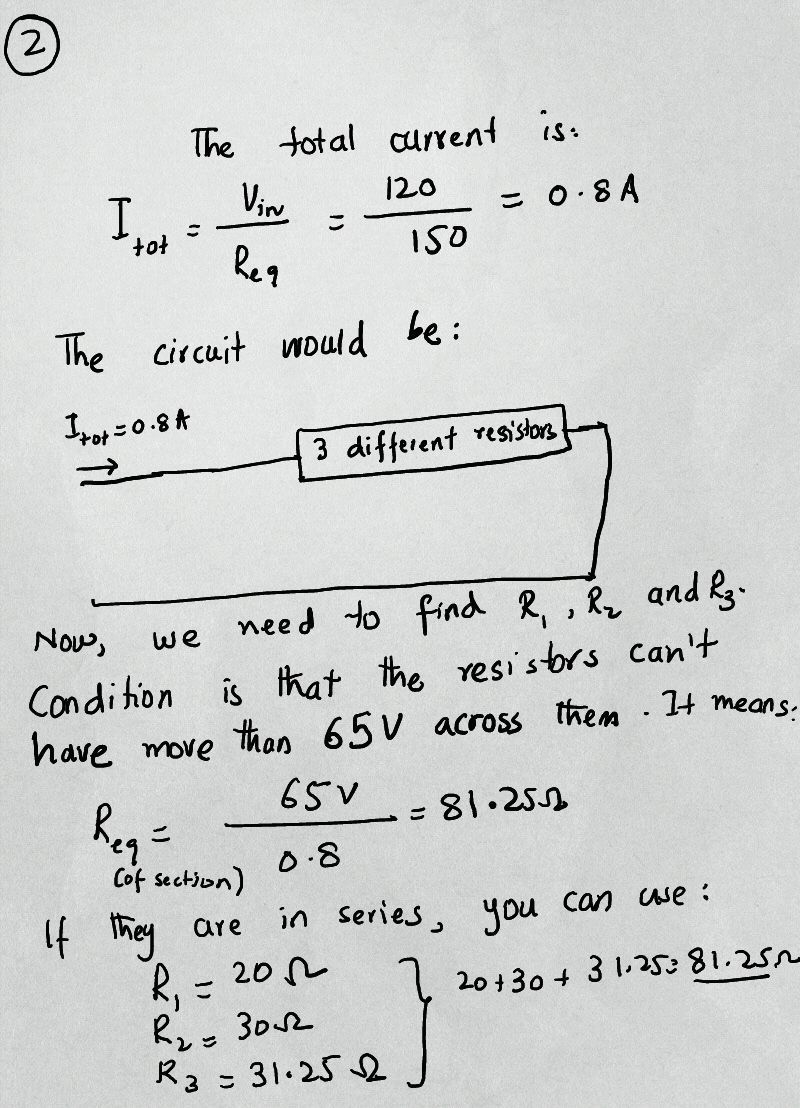 2
The total current is:
I_tot = V_in / R_eq = 120 / 150 = 0.8 A
The circuit would be:
I_tot = 0.8 A
3 different resistors
Now, we need to find R₁, R₂ and R₃.
Condition is that the resistors can't
have more than 65V across them. It means:
R_eq (of section) = 65V / 0.8 = 81.25Ω
If they are in series, you can use:
R₁ = 20Ω
R₂ = 30Ω
R₃ = 31.25 Ω
20+30+31.25= 81.25Ω